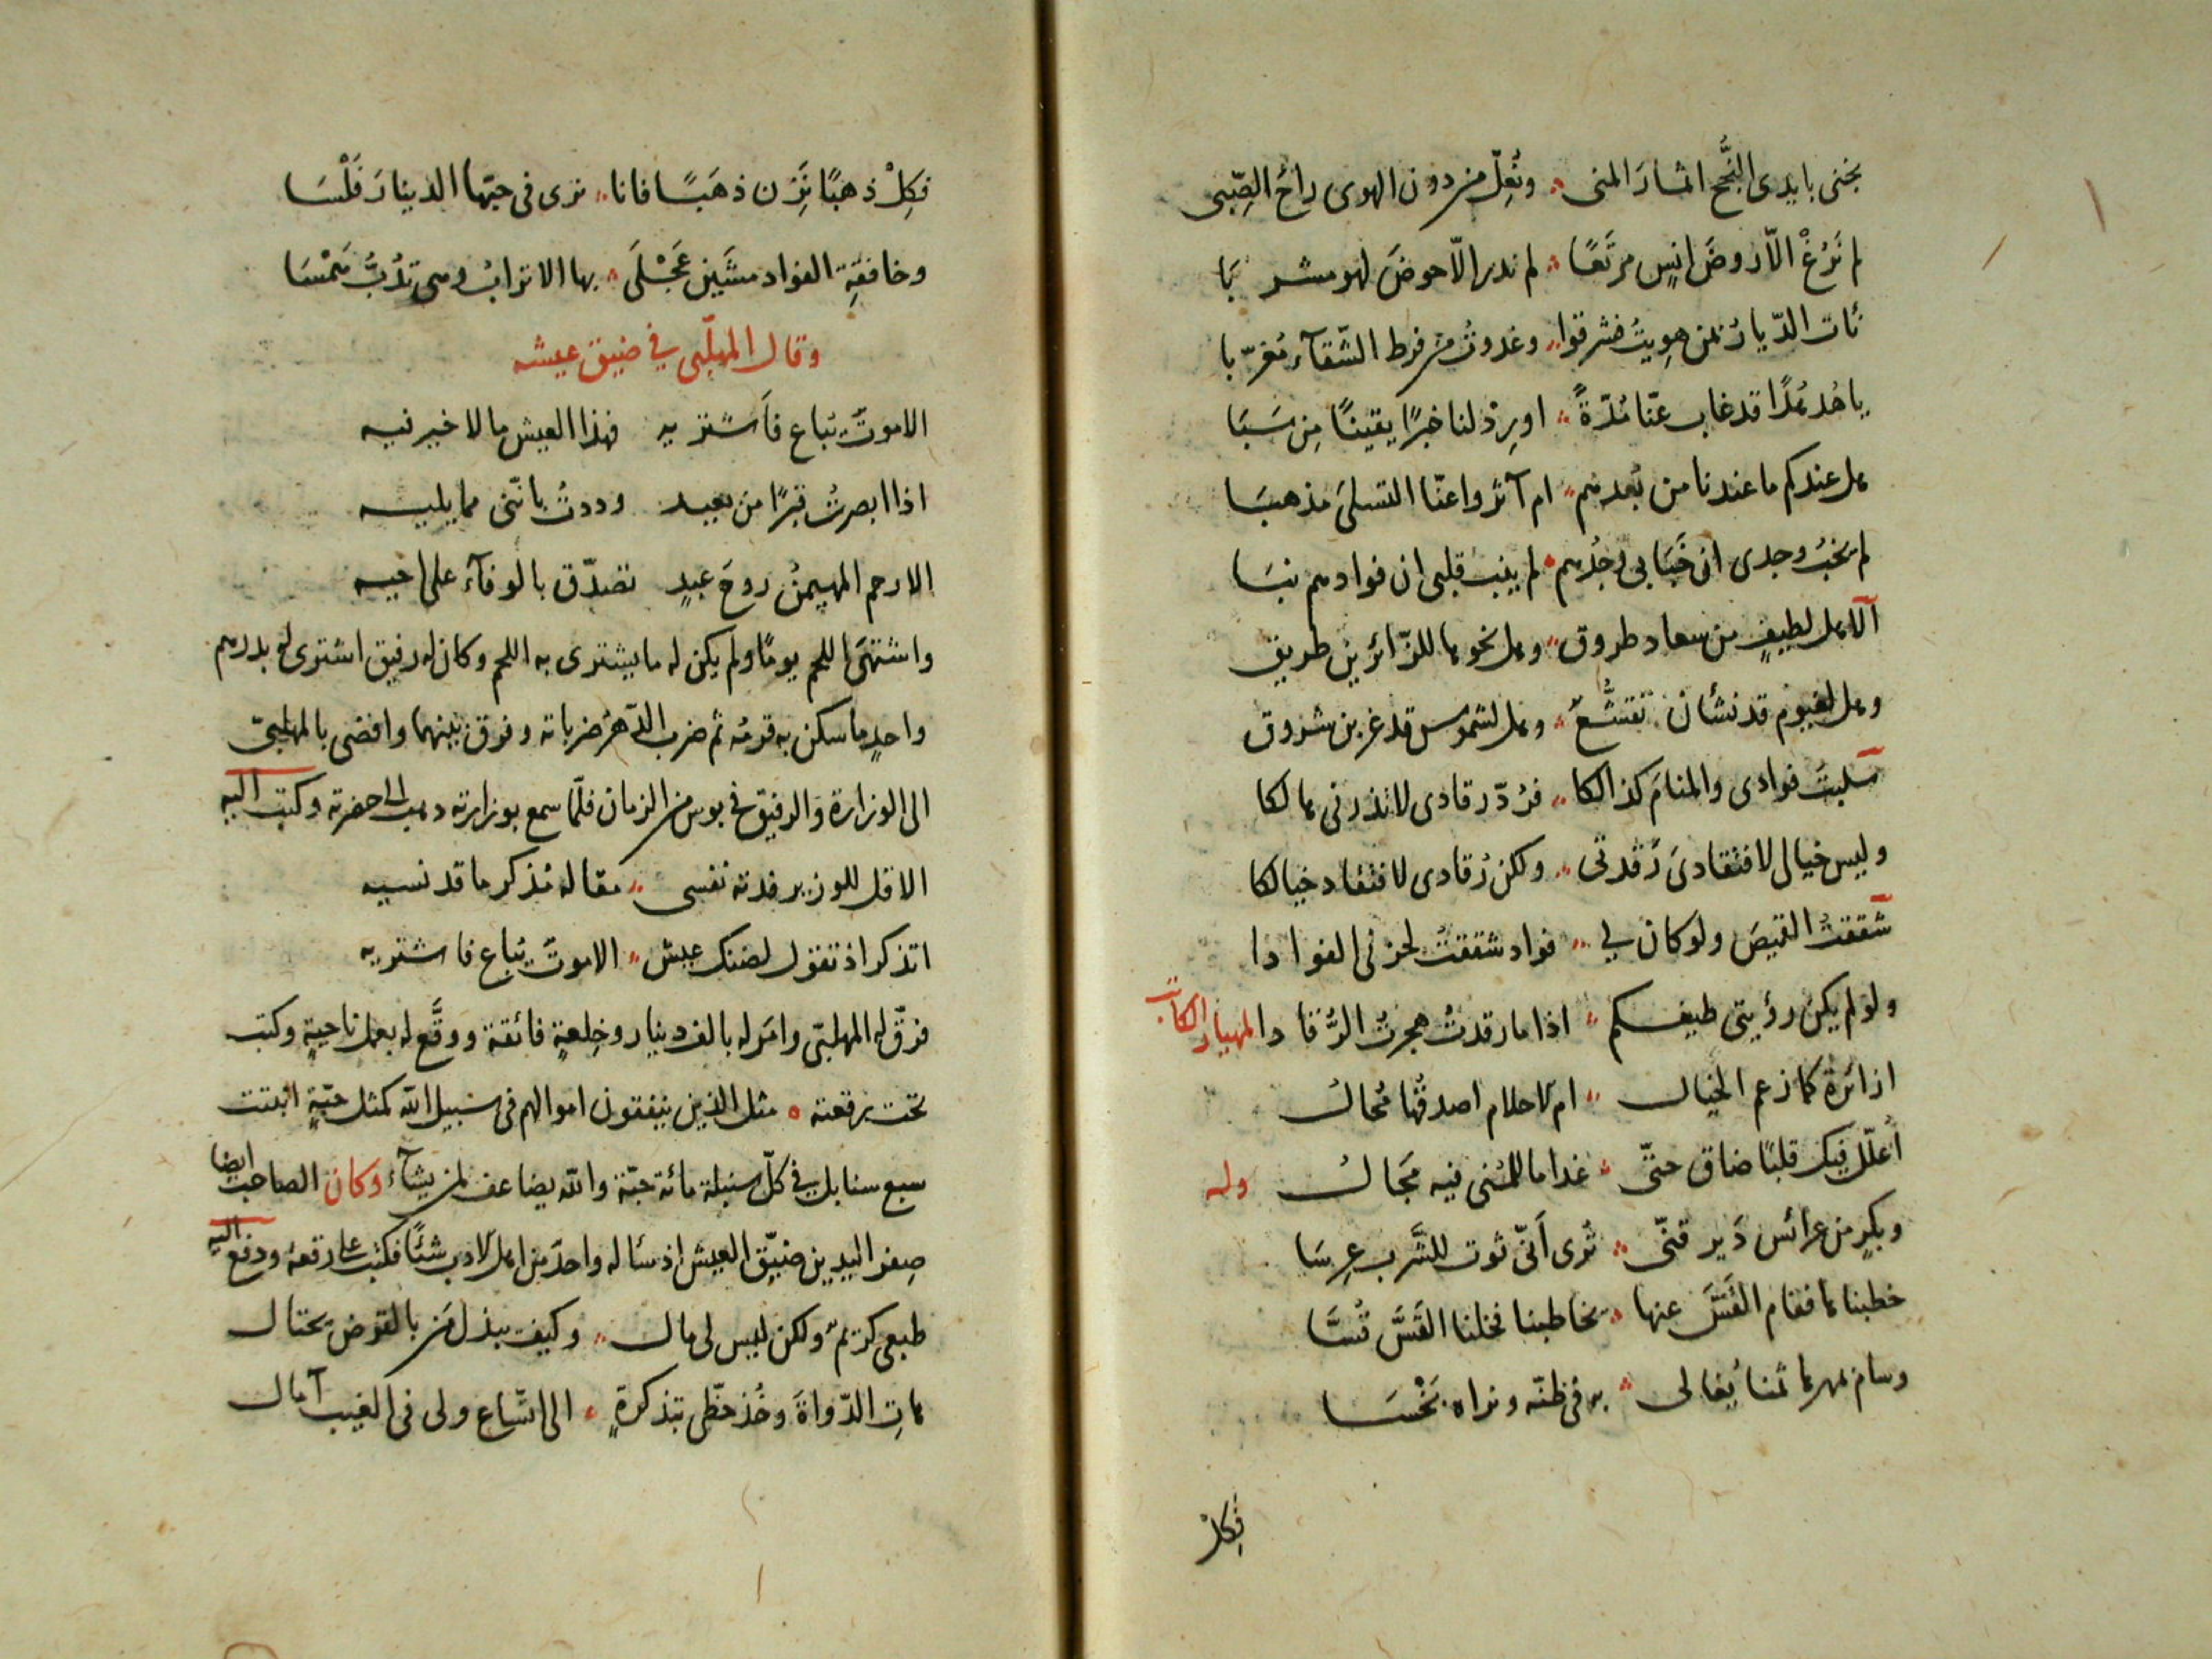 نجنى بايدى النُّجح اثمارَ المنى وتُعِلّ من دون الهوى راحُ الصِّبى
لم نَرْعْ الّا روضَ انسٍ مرتَعًا لم ندر الّا حوضَ لهو مشربَا
نأت الدّيارُ بمن هويتُ فشرقوا وغدوتُ من فرط الشّقآء مُغرّبا
يا هُدهُدًا قد غاب عنّا مُدّةً اورِدْ لنا خبرًا يقينًا مِن سَبَا
هل عندكم ما عندنا من بُعدهم ام آثروا عنّا التسلىَ مذهبَا
لم يخبُ وجدى ان خَبَا بى وجْدُهم لم ينب قلبى ان فوادهم نبَا
الا هل لطيفٍ من سعاد طروق وهل نحوها للزّائرين طريق
وهل لغيوم قد نشأن تقشُّعٌ وهل لشموس قد غربن شروق
سلبتَ فوادى والمنامَ كذالكا فرُدّ رقادى لا تذرنى هالكا
وليس خيالى لافتقادىَ رَقدتى ولكن رُقادى لافتقاد خيالكا
شققتُ القميصَ ولو كان لى فواد شققتُ لحزنى الفوادا
ولو لم يكن رؤيتى طيفكم اذا ما رقدتُ هجرتُ الرُّقادا المهيار الكاتب
ازائرة كما زعم الخيال ام الاحلام اصدقُها مُحالُ
أعلّل فيك قلبًا ضاق حتّى غدا ما للمُنى فيه مَجالُ وله
وبكرٍ من عرائس دَير قنّى ثوى أنّى ثوت للشَّرب عِرسَا
خطبناها فقام القَسّ عنها يخاطبنا فخلنا القَسَّ قُسَّا
وسام مهرها ثمنا يُغالى به فى ظنّه ونراه بَخْسَا
فكِلْ
فكِلْ ذهبًا تَزِن ذهَبًا فانا نرى فى حبّها الدينارَ فَلْسَا
وخافقةِ الفواد مشَين عَجْلَى بها الاترابُ وهى تدُبُّ هَمْسَا
وقال المهلّبى فى ضيق عيشه
الا موتٌ يُباع فَأَشتريه فهذا العيش ما لا خير فيه
اذا ابصرتُ قبرًا من بعيد وددتُ بانّنى مما يليه
الا رحم المهيمنُ روحَ عبدٍ تصدّق بالوفآء على اخيه
واشتهَى اللحم يومًا ولم يكن له ما يشترى به اللحم وكان له رفيق اشترى له بدرهم
واحدٍ ما سكن به قرمُه ثم ضرب الدّهرُ ضرباته وفرق بينهما وافضى بالمهلبىّ
الى الوزارة والرفيق فى بوس من الزمان فلمّا سمع بوزارته ذهب الى حضرته وكتب اليه
الا قل للوزير فدته نفسى مقالَه مُذكر ما قد نسيه
اتذكر اذ تقول لضنك عيش الا موتٌ يُباع فاشتريه
فرَقّ له المهلبّى وامَر له بالف دينار وخِلعةٍ فائقة ووقَّع له بعمل ناحيةٍ وكتب
تحت رقعته مثل الذين ينفقون اموالهم فى سبيل الله كمثل حبّةٍ انبتت
سبع سنابل فى كلّ سنبلة مائة حبّة والله يضاعف لمن يشآء وكان الصاحب ايضا
صِفر اليدين ضيّق العيش اذ سأله واحدٌ من اهل الادب شئًا فكتب على رقعة ودفع اليه
طبعى كريمٌ ولكن ليس لى مال وكيف يبذل من بالقرض يحتال
هاتِ الدّواةَ وخُذ خطّى بتذكرةٍ الى اتّساع ولى فى الغيب آمال